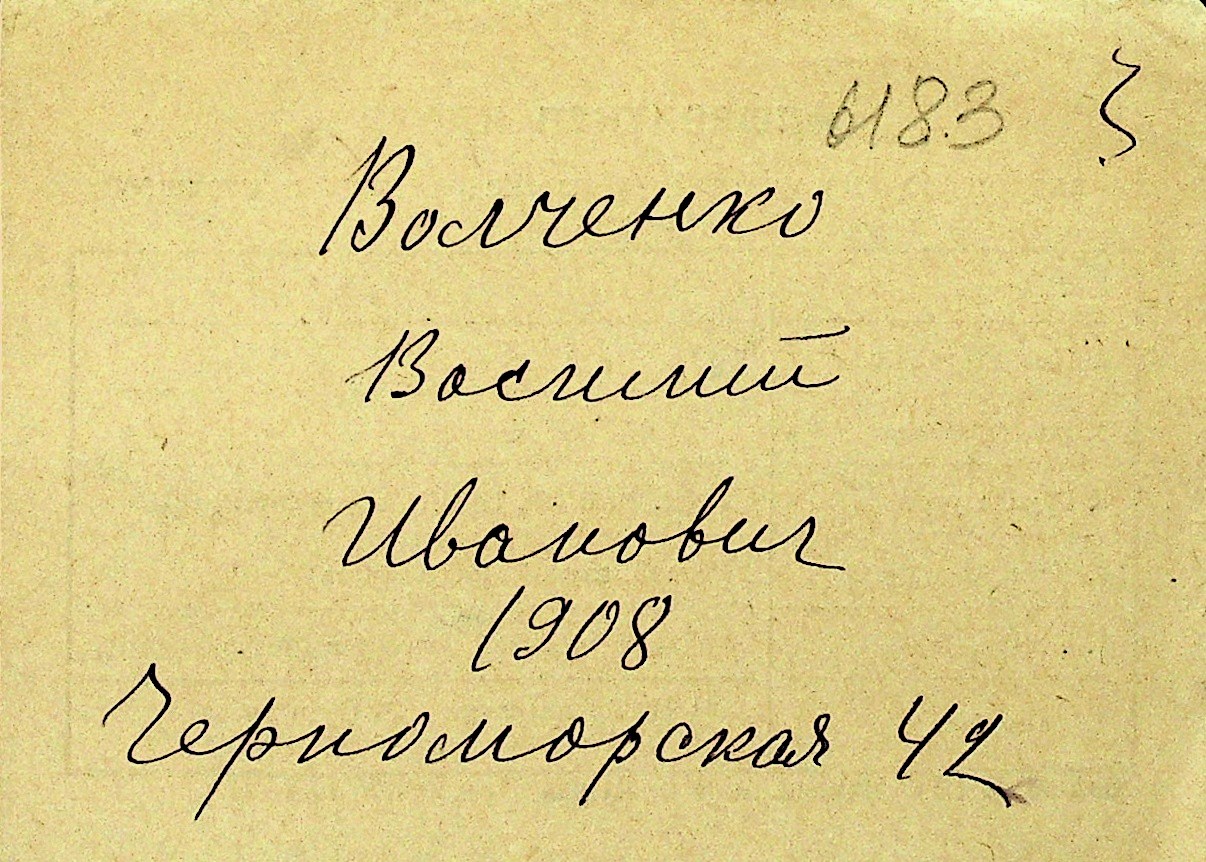 6183
Волченко
Василий
Иванович
1908
Черноморская 42